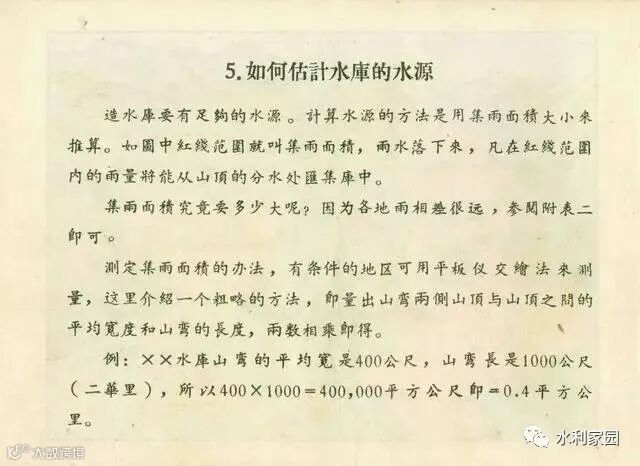 5.如何估計水庫的水源
造水庫要有足夠的水源。計算水源的方法是用集雨面積大小來
推算。如圖中紅綫范圍就叫集雨面積,雨水落下來,凡在紅綫范圍
内的雨量將能从山頂的分水处匯集庫中。
集雨面積究竟要多少大呢?因为各地雨相差很远,参閱附表二
即可。
測定集雨面積的办法,有条件的地区可用平板仪交繪法來測
量,这里介紹一个粗略的方法,即量出山弯兩側山頂与山頂之間的
平均寬度和山弯的長度,兩数相乘即得。
例:××水庫山弯的平均寬是400公尺,山弯長是1000公尺
(二華里),所以400×1000=400,000平方公尺即=0.4平方公
里。
大数跨境
水利家园